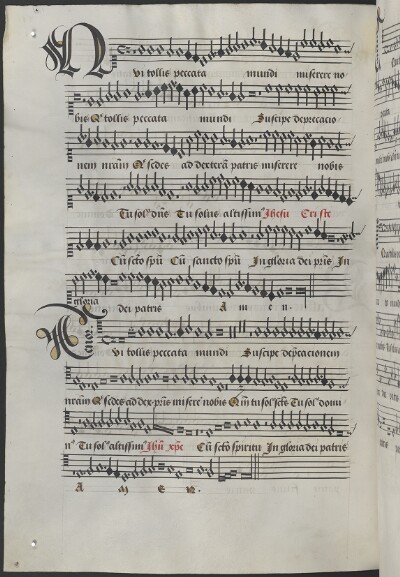 Qui tollis peccata mundi miserere no
bis Qͥ tollis peccata mundi Suscipe deprecacio
nem nr̄am Qͥ sedes ad dexterā patris miserere nobis
Tu solꝰ dn̄s Tu solus altissimꝰ Jhesu Criste
Cū sc̄to sp̄u Cū sancto sp̄u In gloria dei pr̄is, In
gloria dei patris A m e n .
Tenor
Qui tollis peccata mundi Suscipe dep̄cacionem
nr̄am Qͥ sedes ad dex pr̄is misere nobis Qm̄ tu solꝰ sc̄ts Tu solꝰ domi
nꝰ Tu solꝰ altissimꝰ Jhū xp̄e Cū sc̄to spiritu In gloria dei patris
A m e n .